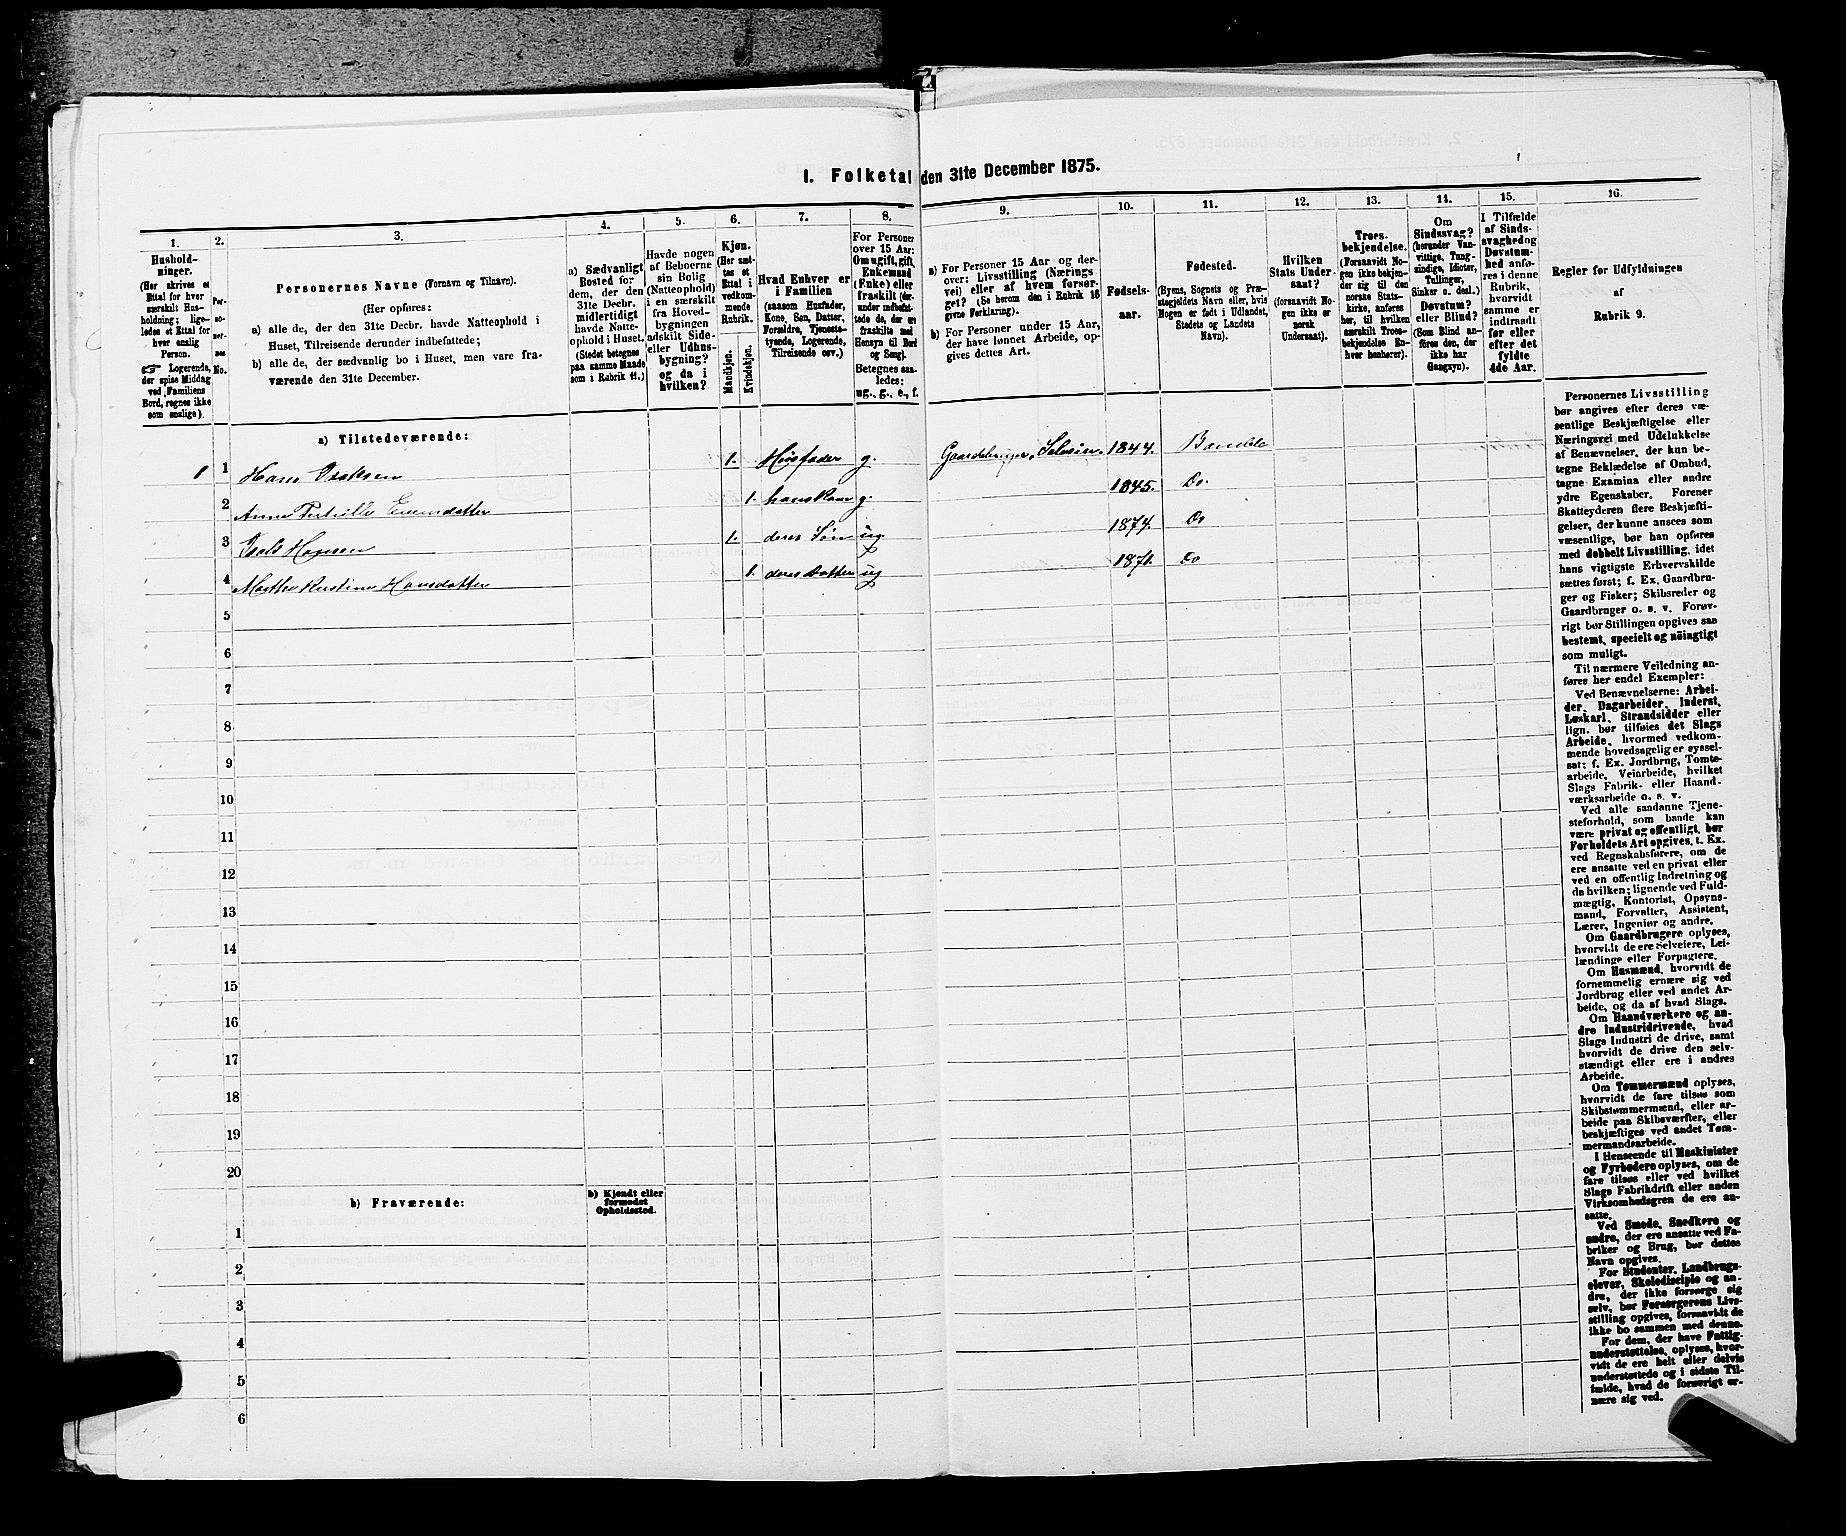 I. Folketal den 31te December 1875.
1. 2. 3. 4. 5. 6. 7. 8. 9. 10. 11. 12. 13. 14. 15. 16.
Hushold-
ninger.
(Her skrives et
Ettal for hver
særskilt Hus-
holdning; lige-
ledes et Ettal for
hver enslig
Person.
☞ Logerende,
der spise Middag
ved Familiens
Bord, regnes ikke
som enslige).
Per-
so-
ner-
nes
No.
Personernes Navne (Fornavn og Tilnavn).
(Her opføres:
a) alle de, der den 31te Decbr. havde Natteophold i
Huset, Tilreisende derunder indbefattede;
b) alle de, der sædvanlig bo i Huset, men vare fra-
værende den 31te December.
a) Sædvanligt
Bosted for
dem, der den
31te Decbr.
midlertidigt
havde Natte-
ophold i Huset.
(Stedet betegnes
paa samme Maade
som i Rubrik 11.)
Havde nogen
af Beboerne
sin Bolig
(Natteophold)
i en særskilt
fra Hoved-
bygningen
adskilt Side-
eller Udhus-
bygning?
og da i
hvilken?
Kjøn.
(Her sæt-
tes et
Ettal i
vedkom-
mende
Rubrik.
Mandkjøn.
Kvindekjøn.
Hvad Enhver er
i Familien
(saasom Husfader,
Kone, Søn, Datter,
Forældre, Tjeneste-
tyende, Logerende,
Tilreisende osv.)
For Personer
over 15 Aar:
Om ugift, gift,
Enkemand
(Enke) eller
fraskilt (der-
under indbefat-
tede de, der ere
fraskilte med
Hensyn til Bord
og Seng).
Betegnes saa-
ledes:
ug., g., e., f.
a) For Personer 15 Aar og der-
over: Livsstilling (Nærings-
vei) eller af hvem forsør-
get? (Se herom den i Rubrik 16
givne Forklaring).
b) For Personer under 15 Aar,
der have lønnet Arbeide, op-
gives dettes Art.
Fødsels-
aar.
Fødested.
(Byens, Sognets og Præ-
stegjeldets Navn eller, hvis
Nogen er født i Udlandet,
Stedets og Landets
Navn).
Hvilken
Stats Under-
saat?
(forsaavidt No-
gen ikke er
norsk
Undersaat).
Troes-
bekjendelse.
(Forsaavidt No-
gen ikke bekjen-
der sig til den
norske Stats-
kirke, anføres
her, til hvilken
særskilt Troes-
bekjendelse En-
hver henhører).
Om
Sindssvag?
(herunder Van-
vittige, Tung-
sindige, Idioter,
Tullinger,
Sinker o. desl.)
Døvstum?
eller Blind?
(Som Blind an-
føres den, der
ikke har
Gangsyn).
I Tilfælde
af Sinds-
svaghed og
Døvstum-
hed anfø-
res i denne
Rubrik,
hvorvidt
samme er
indtraadt
før eller
efter det
fyldte
4de Aar.
Regler for Udfyldningen
af
Rubrik 9.
a) Tilstedeværende:
1 1 Hans Isaksen 1. Husfader g. Gaardbruger, Selveier. 1844. Bamble
2 1. hans Kone g. 1845. Do.
3 Isak Hansen 1. deres Søn ug 1874. Do
4 Marthe Kirstine Hansdatter 1. deres Datter ug 1871. Do
5
6
7
8
9
10
11
12
13
14
15
16
17
18
19
20
b) Fraværende:
b) Kjendt eller
formodet
Opholdssted.
1
2
3
4
5
6
Personernes Livsstilling
bør angives efter deres væ-
sentlige Beskjæftigelse eller
Næringsvei med Udelukkelse
af Benævnelser, der kun be-
tegne Beklædelse af Ombud,
tagne Examina eller andre
ydre Egenskaber. Forener
Skatteyderen flere Beskjæfti-
gelser, der kunne ansees som
væsentlige, bør han opføres
med dobbelt Livsstilling, idet
hans vigtigste Erhvervskilde
sættes først; f. Ex. Gaardbru-
ger og Fisker; Skibsreder og
Gaardbruger o. s. v. Forøv-
rigt bør Stillingen opgives saa
bestemt, specielt og nøiagtigt
som muligt.
Til nærmere Veiledning an-
føres her endel Exempler:
Ved Benævnelserne: Arbei-
der, Dagarbeider, Inderst,
Løskarl, Strandsidder eller
lign. bør tilføies det Slags
Arbeide, hvormed vedkom-
mende hovedsagelig er syssel-
sat; f. Ex. Jordbrug, Tomte-
arbeide, Veiarbeide, hvilket
Slags Fabrik- eller Haand-
værksarbeide o. s. v.
Ved alle saadanne Tjene-
steforhold, som baade kan
være privat og offentligt, bør
Forholdets Art opgives, t. Ex.
ved Regnskabsførere, om de
ere ansatte ved en privat eller
ved en offentlig Indretning og
da hvilken; lignende ved Fuld-
mægtig, Kontorist, Opsyns-
mand, Forvalter, Assistent,
Lærer, Ingeniør og andre.
Om Gaardbrugere oplyses,
hvorvidt de ere Selveiere, Lei-
lændinge eller Forpagtere.
Om Husmænd, hvorvidt de
fornemmelig ernære sig ved
Jordbrug eller ved andet Ar-
beide, og da af hvad Slags.
Om Haandværkere og an-
dre Industridrivende, hvad
Slags Industri de drive, samt
hvorvidt de drive den selv-
stændigt eller ere i andres
Arbeide.
Om Tømmermænd oplyses,
hvorvidt de fare tilsøs som
Skibstømmermænd, eller ar-
beide paa Skibsværfter, eller
beskjæftiges ved andet Tøm-
mermandsarbeide.
I Henseende til Maskinister
og Fyrbødere oplyses, om de
fare tilsøs eller ved hvilket
Slags Fabrikdrift eller anden
Virksomhedsgren de ere an-
satte.
Ved Smede, Snedkere og
andre, der ere ansatte ved Fa-
briker og Brug, bør dettes
Navn opgives.
For Studenter, Landbrugs-
elever, Skoledisciple og an-
dre, der ikke forsørge sig
selv, bør Forsørgerens Livs-
stilling opgives, forsaavidt de
ikke bo sammen med denne.
For dem, der have Fattig-
understøttelse, oplyses, hvor-
vidt de ere helt eller delvis
understøttede og i sidste Til-
fælde, hvad de forøvrigt er-
nære sig ved.